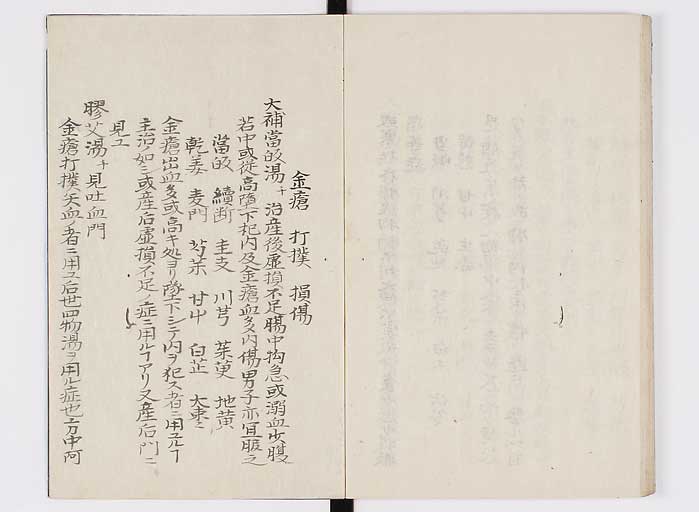 金瘡 打撲 損傷
大補當皈湯 十 治産後虚損不足腸中拘急或溺血少腹
若中或従高墮下犯内及金瘡血多内傷男子亦宜服之
當皈 續斷 圭支 川芎 茱萸 地黄
乾姜 麦門 芍茶 甘艸 白芷 大棗
金瘡出血多或高キ処ヨリ墜下シテ内ヲ犯ス者ニ用ユルヿ
主治ノ如ニ或産后虚損不足ノ症ニ用ルヿアリ又産后門ニ
見ユ
膠艾湯 十 見吐血門
金瘡打撲失血ノ者ニ用ユ后世四物湯ヲ用ル症也方中阿